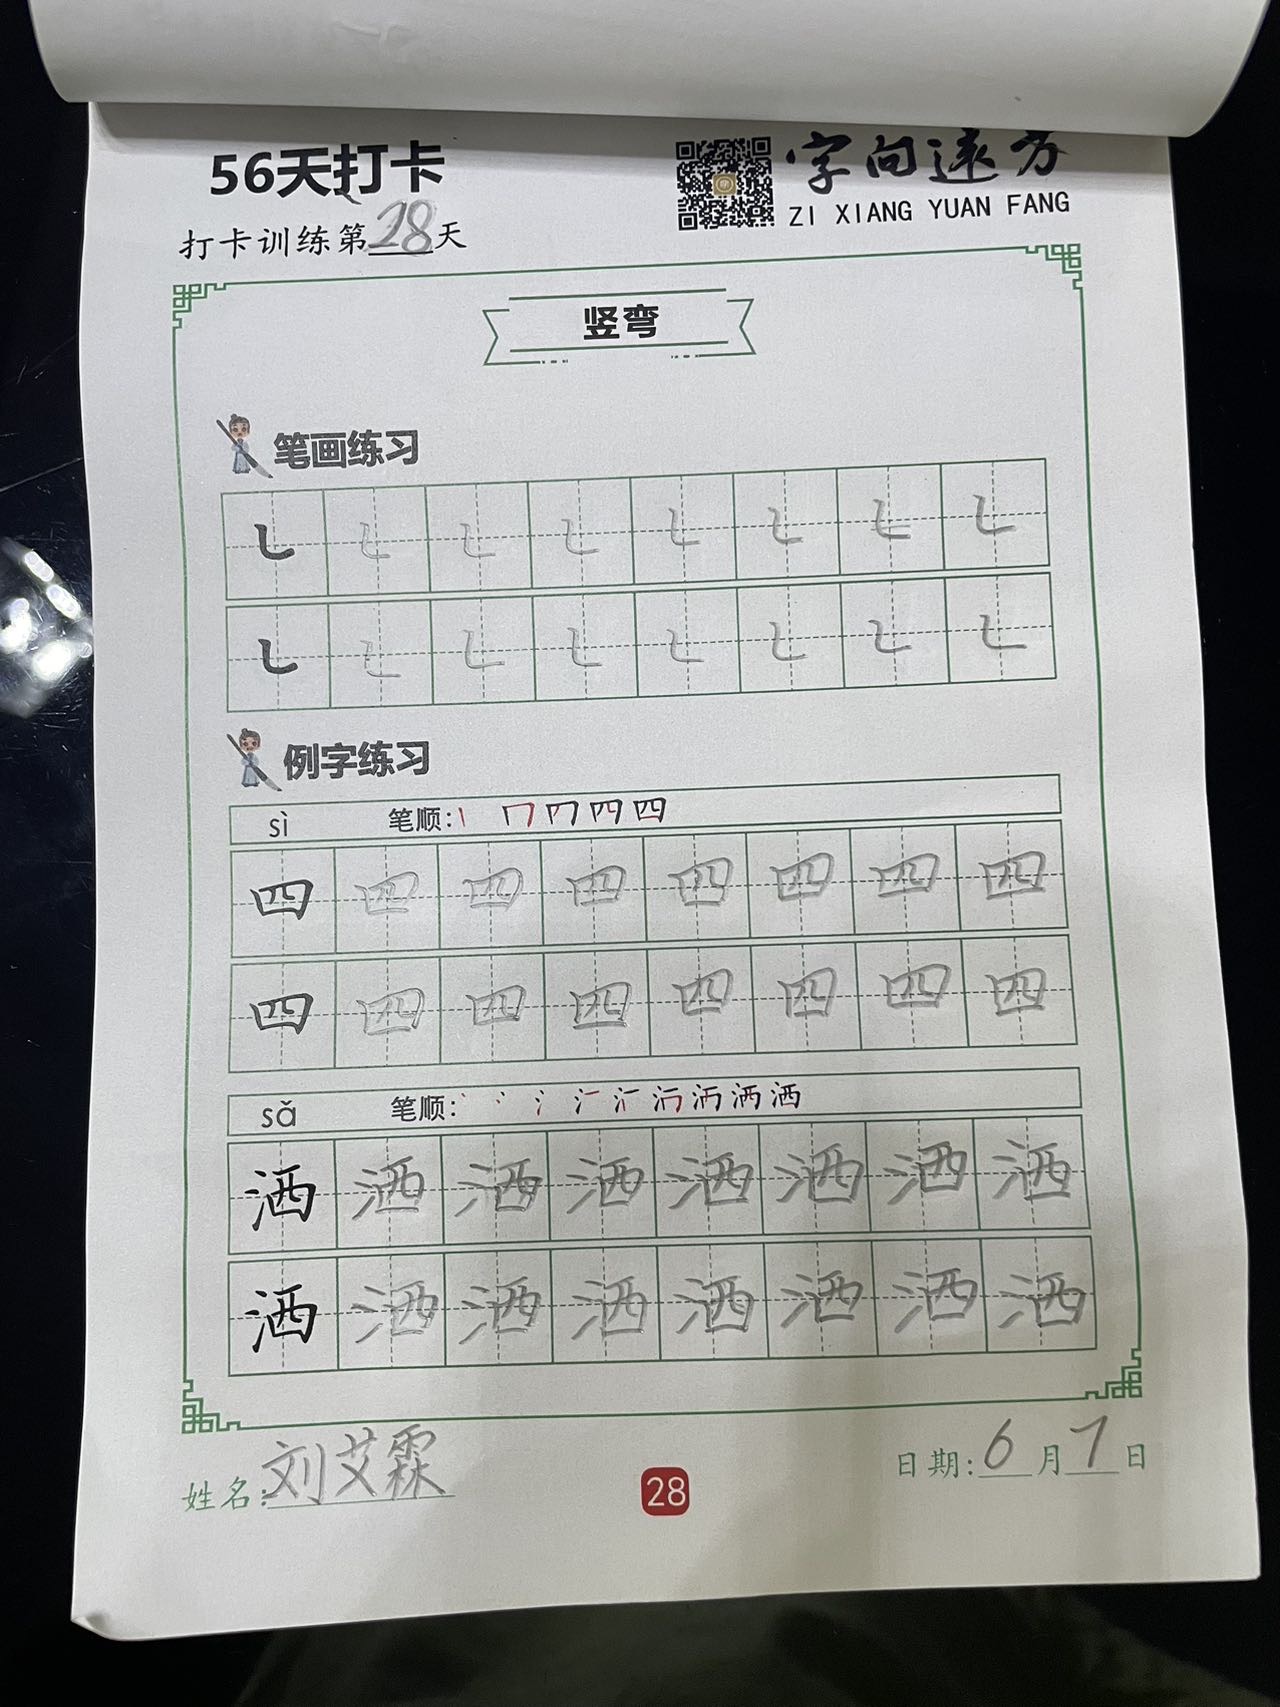 56天打卡
字向远方
ZI XIANG YUAN FANG
打卡训练第28天
竖弯
笔画练习
例字练习
sì 笔顺:
四 四 四 四 四 四 四 四
四 四 四 四 四 四 四 四
sǎ 笔顺:
洒 洒 洒 洒 洒 洒 洒 洒
洒 洒 洒 洒 洒 洒 洒 洒
姓名:刘艾霖
28
日期:6月7日